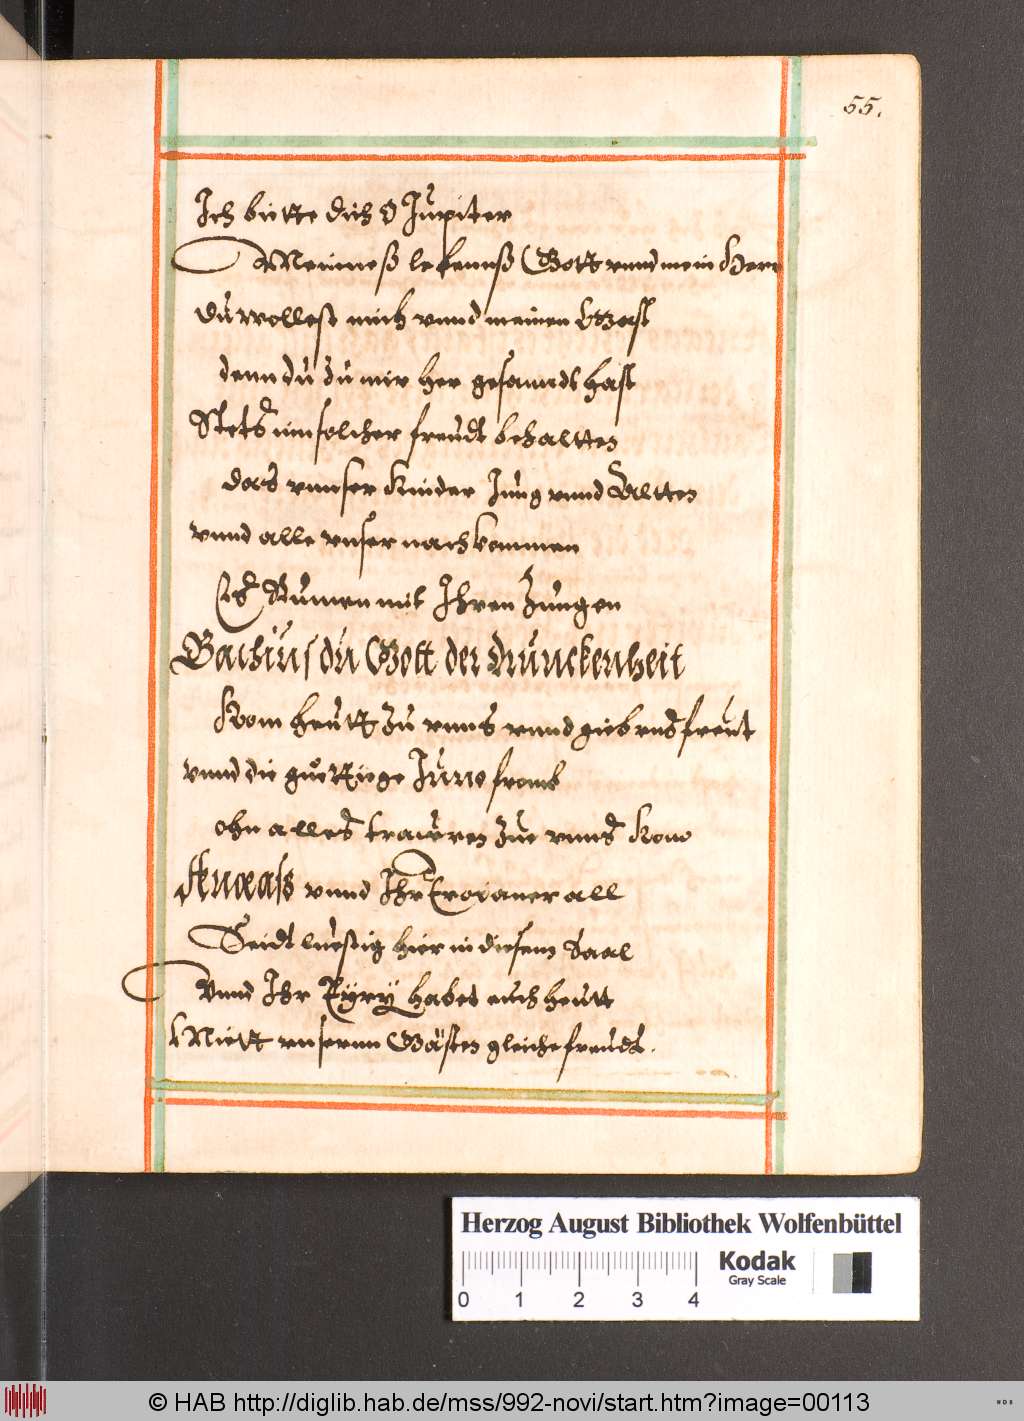 55.
Ich bitte dich O Jupiter
Meineß lebennß Gott vnnd mein Herr
du wollest mich vnnd meinen Gast
denn du zu mir her gesanndt hast
Stets inn solcher freudt behaltten
das vnnser Kinder Jung vnnd Altten
vnnd alle vnser nachkommen
Es Rumen mit Ihren Zungen
Bachius du Gott der drunckenheit
Kom heutt zu vnns vnnd gieb vns freut
vnnd die guettige Juno fromb
ohn alles trauren zue vnns Kom
Aeneass vnnd Ihr Troianer all
Seidt luestig hier in diesem Saal
Vnnd Ihr Tyry habet auch heutt
Mitt vnserun Gästen gleiche freudt.
Herzog August Bibliothek Wolfenbüttel
Kodak
Gray Scale
0 1 2 3 4
© HAB http://diglib.hab.de/mss/992-novi/start.htm?image=00113